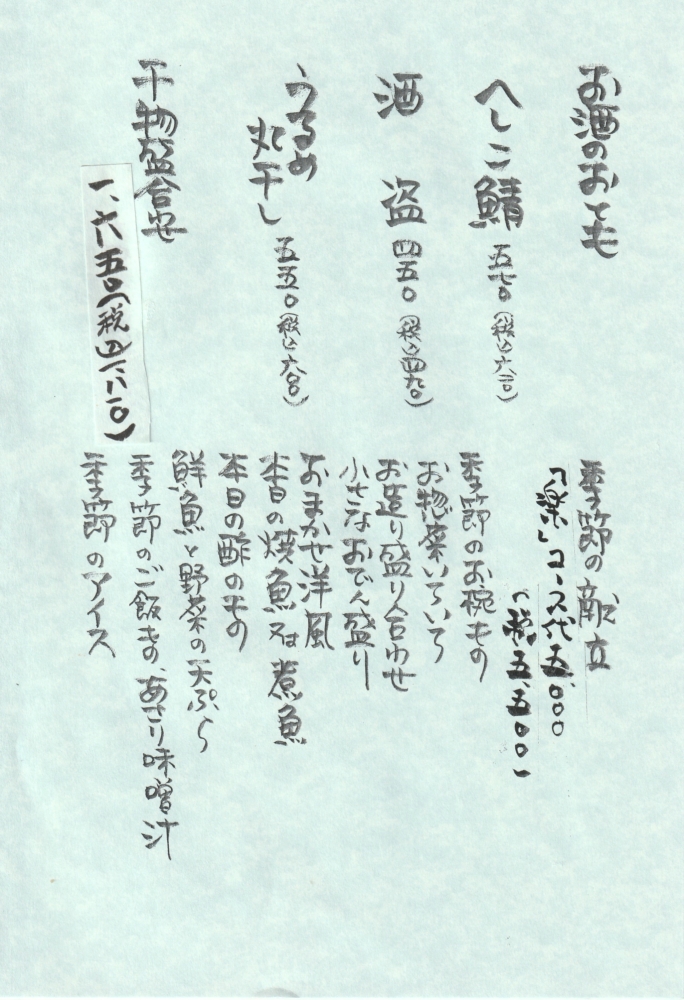 お酒のおとも
へしこ鯖 五七〇(税込六二〇)
酒盗 四五〇(税込四九〇)
うるめ
丸干し 五五〇(税込六〇〇)
干物盛合せ
一、六五〇(税込一、八一〇)
季節の献立
「楽」コース代五、〇〇〇
(税込五、五〇〇)
季節のお椀もの
お惣菜いろいろ
お造り盛り合わせ
小さなおでん盛り
おまかせ洋風
本日の焼魚又は煮魚
本日の酢のもの
鮮魚と野菜の天ぷら
季節のご飯もの、あさり味噌汁
季節のアイス